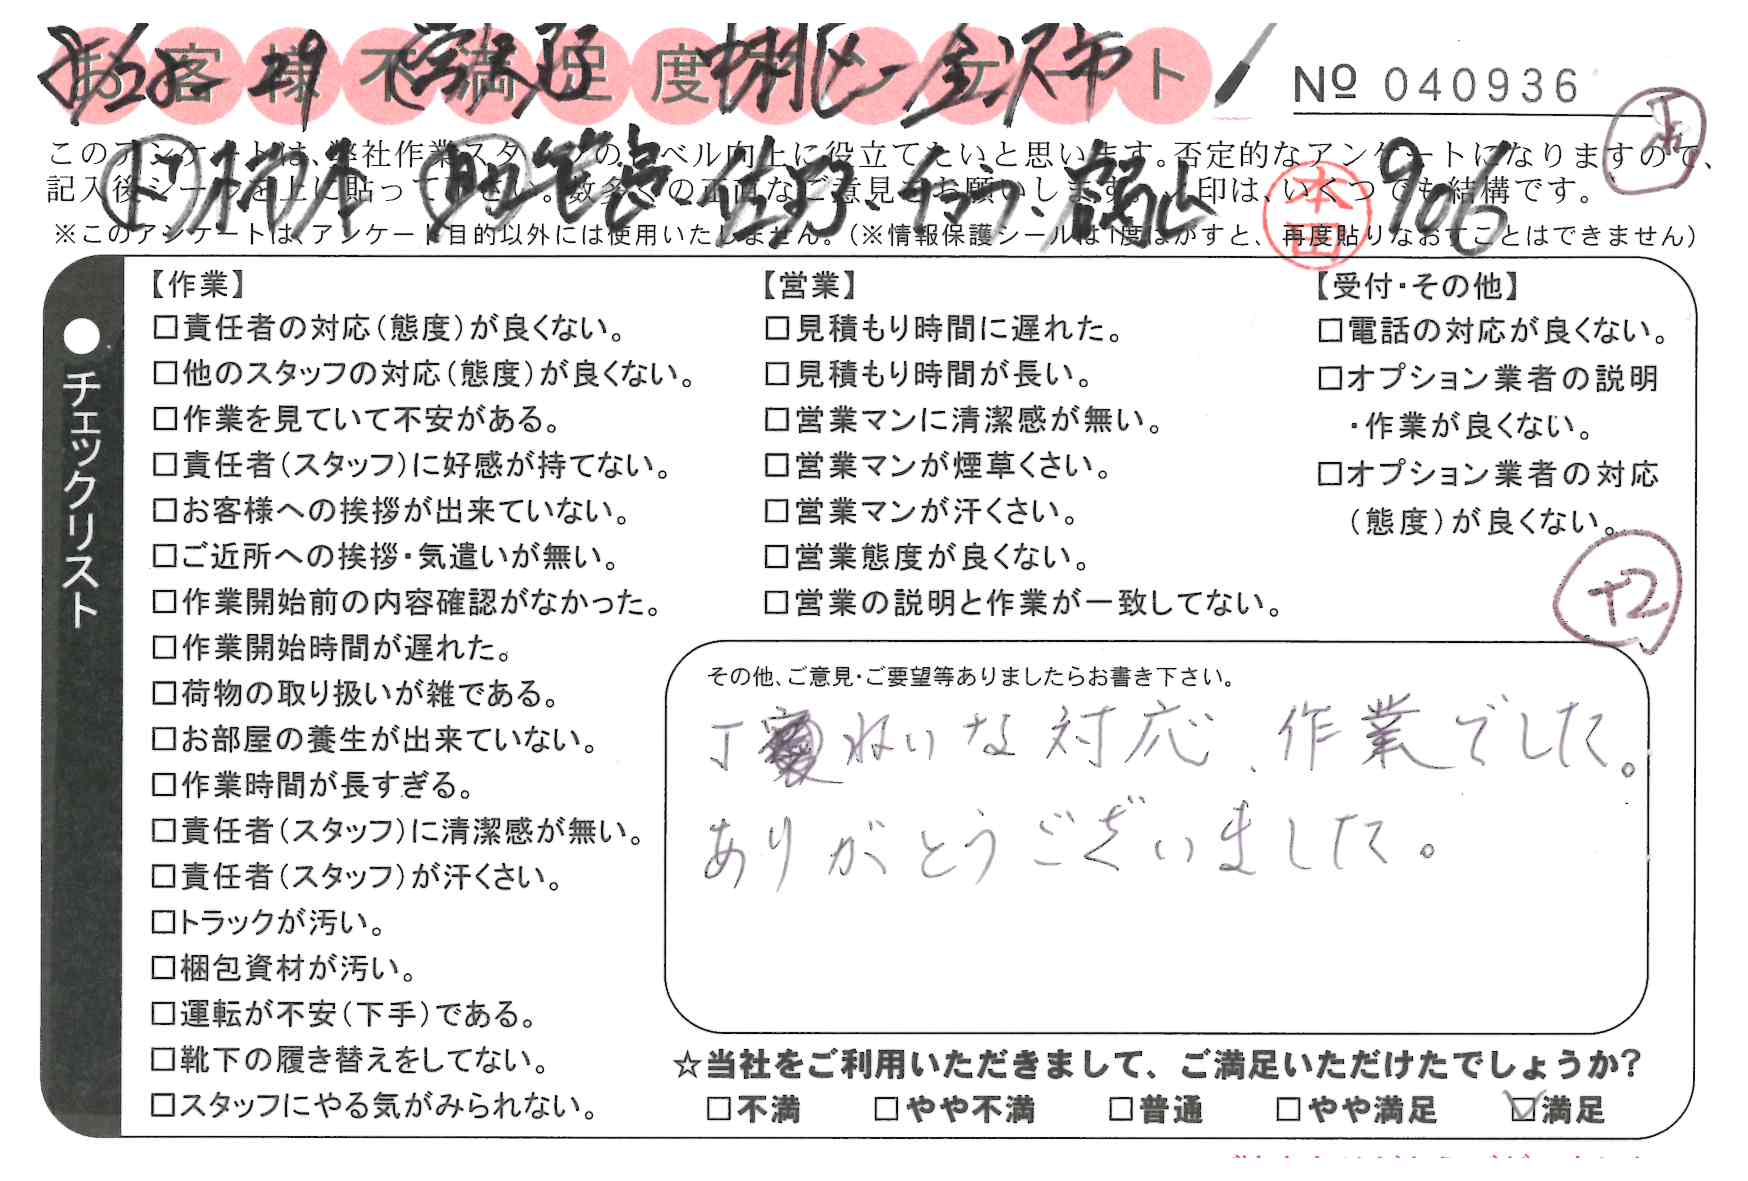 お客様不満足度アンケート
№ 040936
このアンケートは、弊社作業スタッフのレベル向上に役立てたいと思います。否定的なアンケートになりますので、
記入後シールを上に貼って下さい。数多くの正直なご意見をお願いします。レ印は、いくつでも結構です。
※このアンケートは、アンケート目的以外には使用いたしません。(※情報保護シールは1度はがすと、再度貼りなおすことはできません)
金沢市
906
本田
●チェックリスト
【作業】
□責任者の対応(態度)が良くない。
□他のスタッフの対応(態度)が良くない。
□作業を見ていて不安がある。
□責任者(スタッフ)に好感が持てない。
□お客様への挨拶が出来ていない。
□ご近所への挨拶・気遣いが無い。
□作業開始前の内容確認がなかった。
□作業開始時間が遅れた。
□荷物の取り扱いが雑である。
□お部屋の養生が出来ていない。
□作業時間が長すぎる。
□責任者(スタッフ)に清潔感が無い。
□責任者(スタッフ)が汗くさい。
□トラックが汚い。
□梱包資材が汚い。
□運転が不安(下手)である。
□靴下の履き替えをしてない。
□スタッフにやる気がみられない。
【営業】
□見積もり時間に遅れた。
□見積もり時間が長い。
□営業マンに清潔感が無い。
□営業マンが煙草くさい。
□営業マンが汗くさい。
□営業態度が良くない。
□営業の説明と作業が一致してない。
【受付・その他】
□電話の対応が良くない。
□オプション業者の説明
・作業が良くない。
□オプション業者の対応
(態度)が良くない。
+2
その他、ご意見・ご要望等ありましたらお書き下さい。
丁ねいな対応、作業でした。
ありがとうございました。
☆当社をご利用いただきまして、ご満足いただけたでしょうか?
□不満 □やや不満 □普通 □やや満足 ☑満足